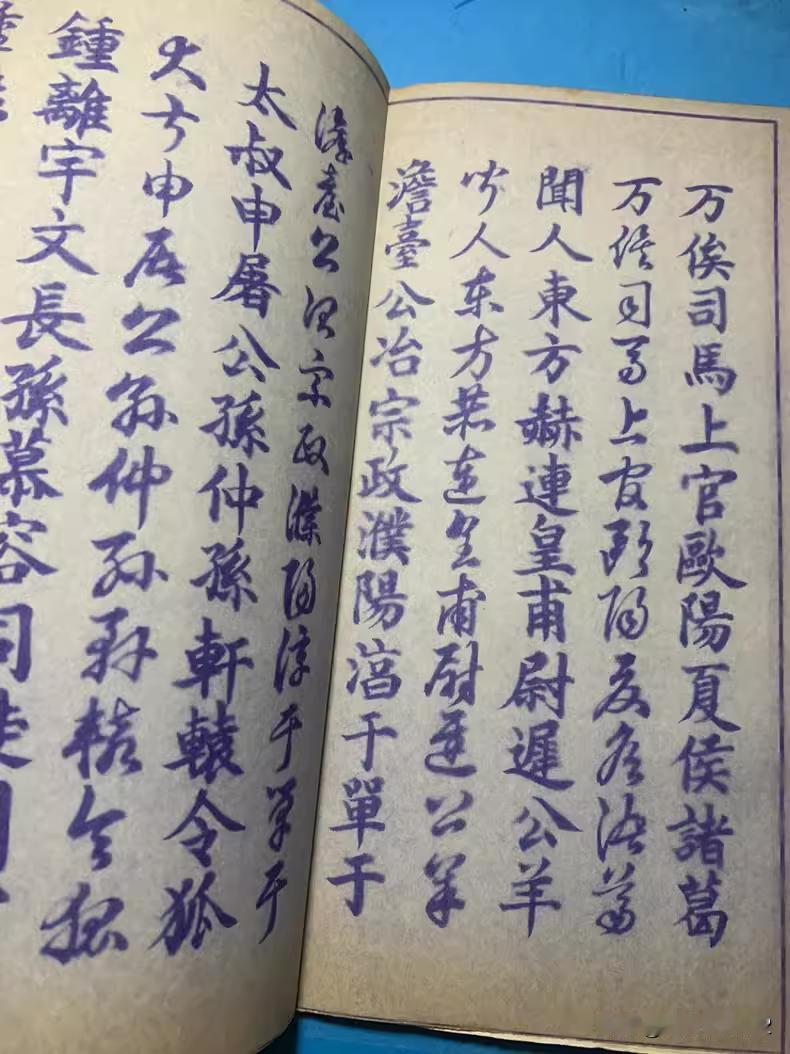 万俟司馬上官歐陽夏侯諸葛
万俟司馬上官歐陽夏侯諸葛
聞人東方赫連皇甫尉遲公羊
聞人东方赫連皇甫尉遲公羊
澹臺公冶宗政濮陽湻于單于
澹臺公冶宗政濮陽淳于單于
太叔申屠公孫仲孫軒轅令狐
太叔申屠公孫仲孫軒轅令狐
鍾離宇文長孫慕容司徒司